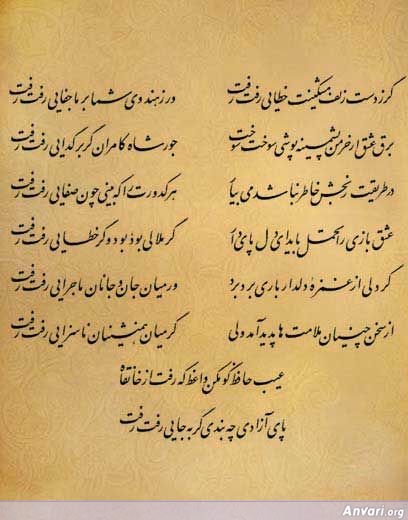 گر ز دست زلف مشکینت خطایی رفت رفت ور ز هندوی شما بر ما جفایی رفت رفت
برق عشق ار خرمن پشمینه پوشی سوخت سوخت جور شاه کامران گر بر گدایی رفت رفت
در طریقت رنجش خاطر نباشد می بیار هر کدورت را که بینی چون صفایی رفت رفت
عشق بازی را تحمل باید ای دل پای دار گر ملالی بود بود و گر خطایی رفت رفت
گر دلی از غمزهٔ دلدار باری برد برد ور میان جان و جانان ماجرایی رفت رفت
از سخن چینان ملامت ها پدید آمد ولی گر میان همنشینان ناسزایی رفت رفت
عیب حافظ گو مکن واعظ که رفت از خانقاه
پای آزادی چه بندی گر به جایی رفت رفت
Anvari.org